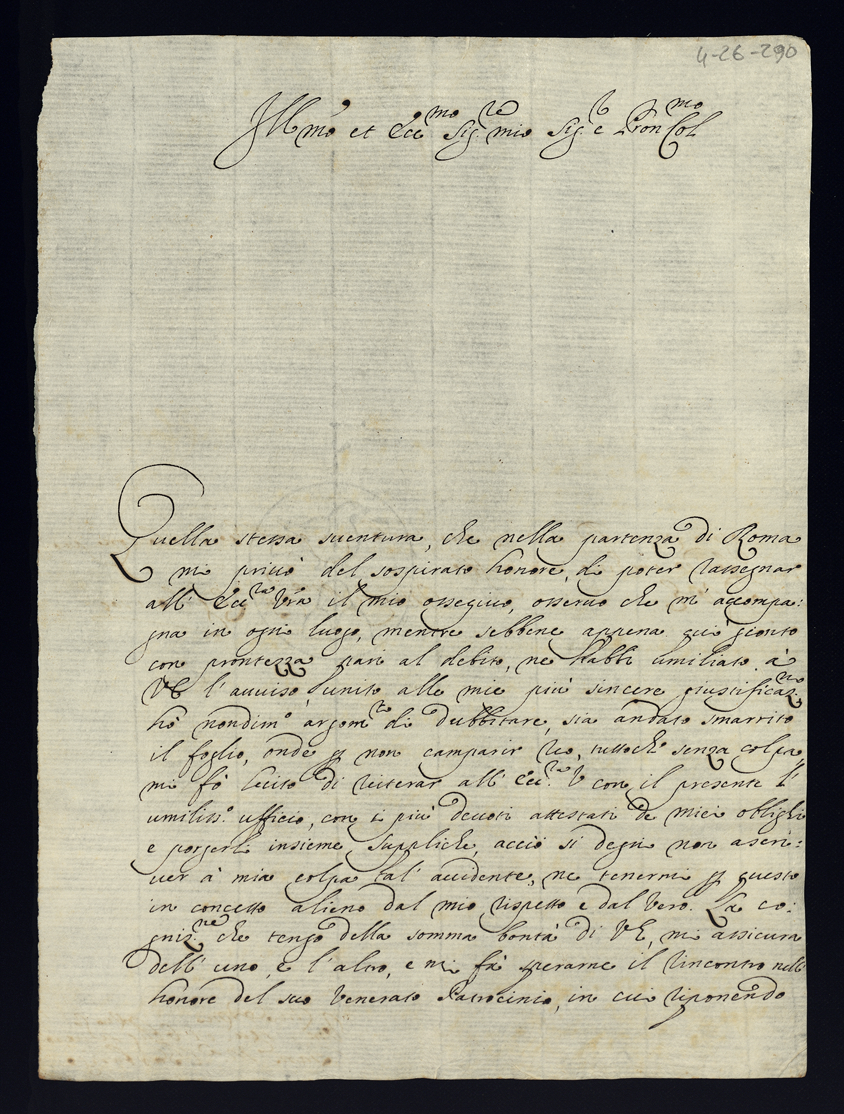 4-26-290
Ill.mo et Ecc.mo Sig.re mio Sig.r e Pron Col.mo
Quella stessa suentura, che nella partenza di Roma
mi priuò del sospirato honore, di poter rassegnar
all' Ecc.za Vra il mio ossequio, osseruo che m' accompa:
gna in ogni luogo, mentre sebbene appena quì gionto
con prontezza pari al debito, ne habbi umiliato à
VE l'auuiso unito alle mie più sincere giustificaz.ni
hò nondim.o argom.to di dubbitare, sia andato smarrito
il foglio, onde p non camparir reo, tuttoche senza colpa,
mi fò lecito di reiterar all' Ecc.za V con il presente l'
umiliss.o ufficio, con i più deuoti attestati de miei oblighi
e porgerli insieme suppliche, acciò si degni non ascri:
uer à mia colpa tal' accidente, ne tenermi p questo
in concetto alieno dal mio rispetto e dal vero. La co:
gniz.ne che tengo della somma bontà di VE, mi assicura
dell' uno, e l'altro, e mi fà sperarne il rincontro nell'
honore del suo venerato Patrocinio, in cui riponendo